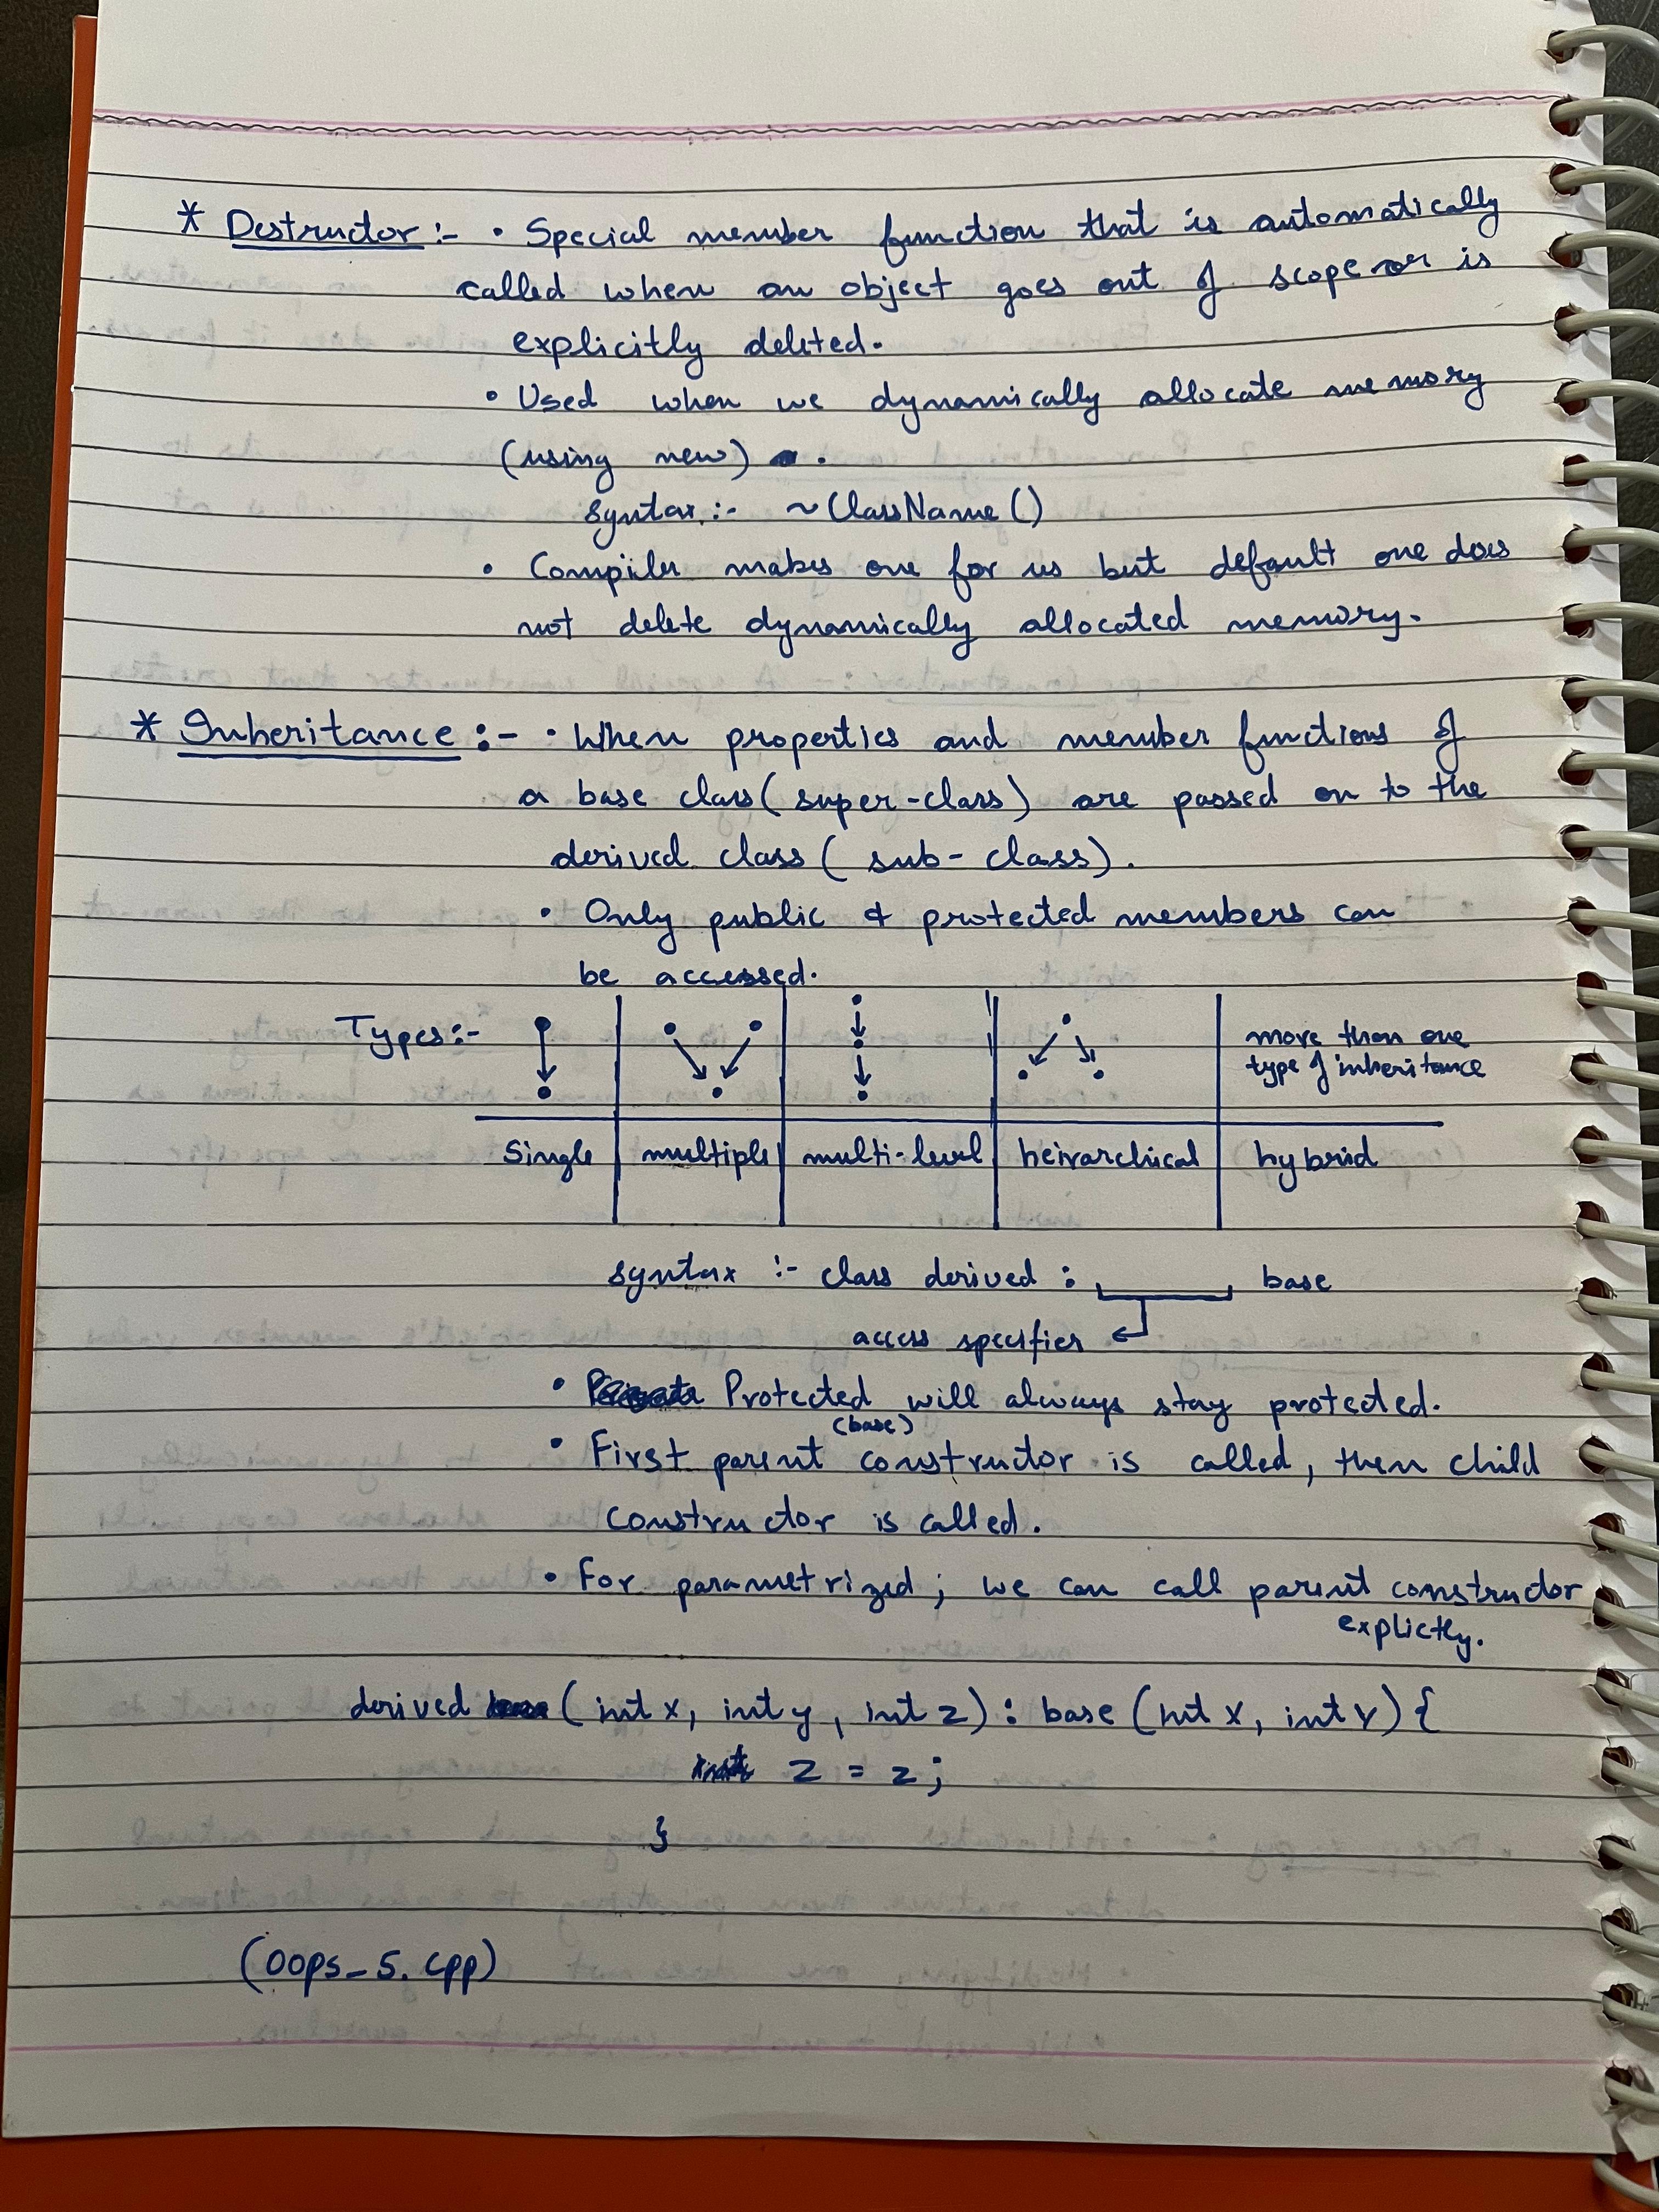 * Destructor :- • Special member function that is automatically
called when an object goes out of scope or is
explicitly deleted.
• Used when we dynamically allocate memory
(using new) .
syntax :- ~ClassName()
• Compiler makes one for us but default one does
not delete dynamically allocated memory.
* Inheritance :- • When properties and member functions of
a base class (super-class) are passed on to the
derived class (sub-class).
• Only public & protected members can
be accessed.
Types :- more than one
type of inheritance
Single multiple multi-level heirarchical hybrid
syntax :- class derived : base
access specifier
• Protected will always stay protected.
(base)
• First parent constructor is called, then child
constructor is called.
• For parametrized ; we can call parent constructor
explictly.
derived (int x, int y, int z) : base (int x, int y) {
z = z ;
}
(Oops_5.cpp)